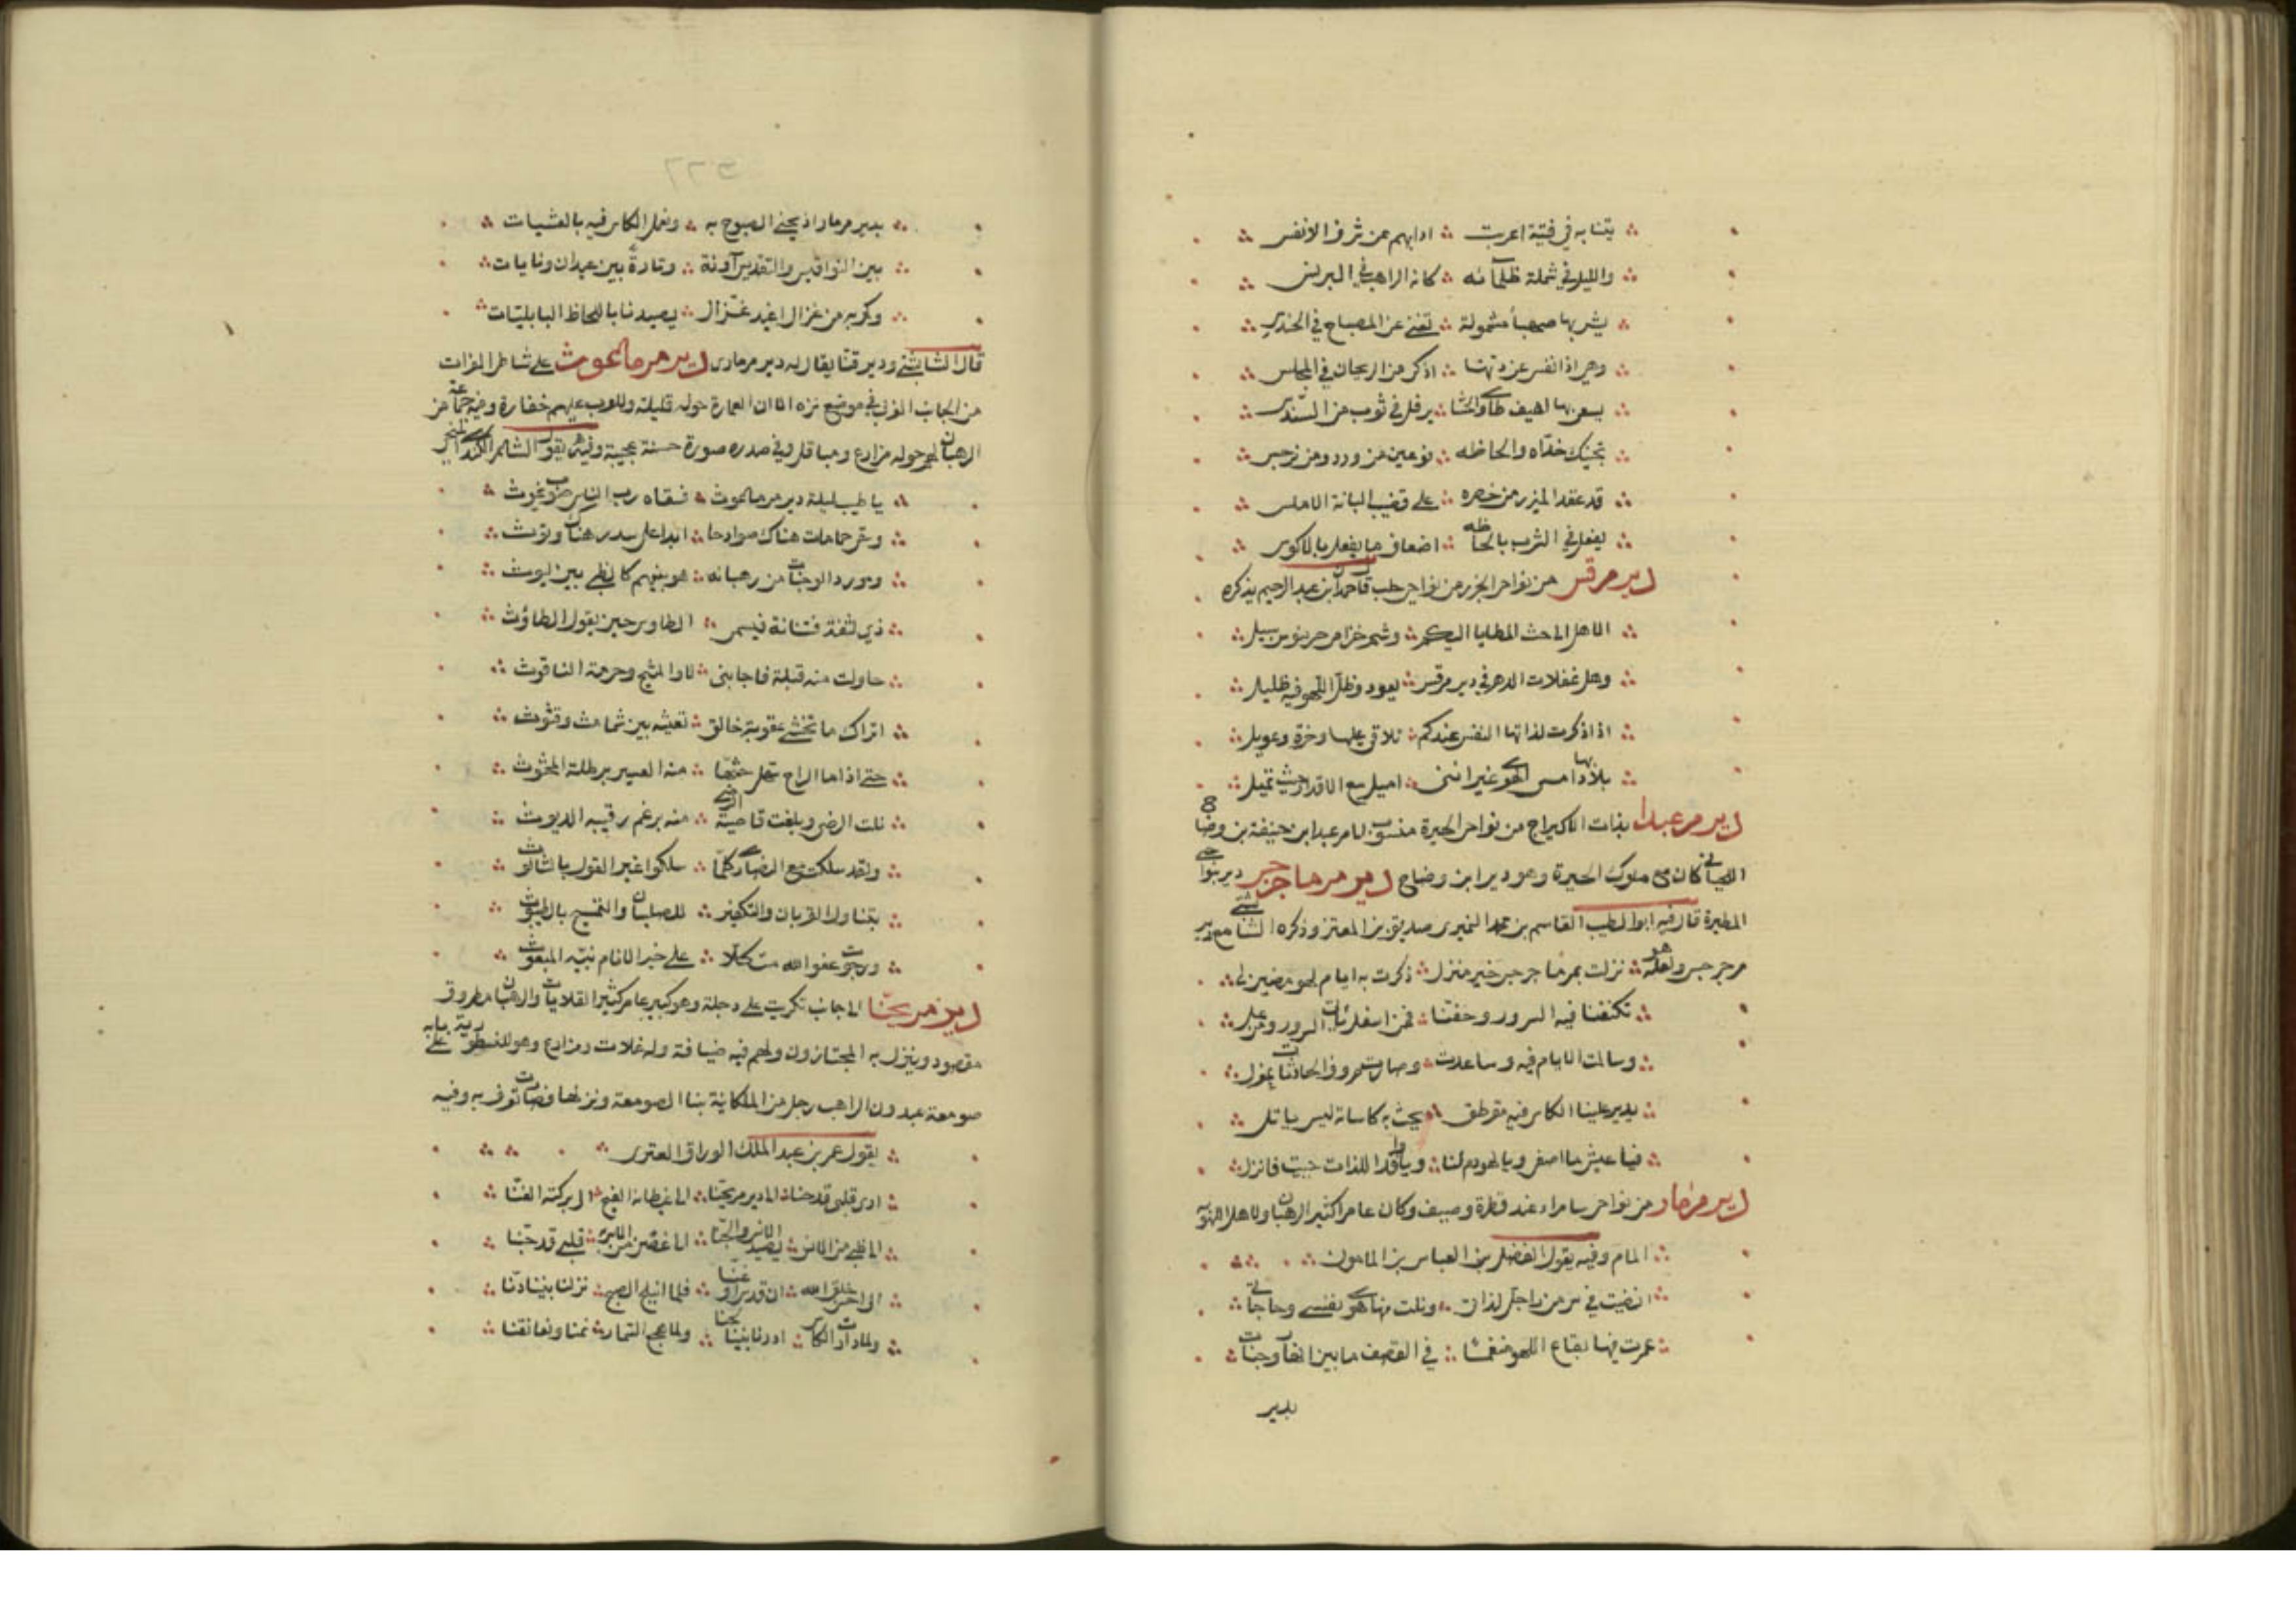 بتنا به في فتية اعربت ∴ ادابهم عن شرف الانفس
والليل في شملة ظلمائه ∴ كانه الراهب في البرنس
يشربها صهباء مشمولة ∴ تغني عن المصباح في الحندس
وهي اذا نفس عن دنها ∴ اذكى من الريحان في المجلس
يسعى بها اهيف طاوى الحشا ∴ يرفل في ثوب من السندس
تجنيك خداه والحاظه ∴ نوعين من ورد ومن نرجس
قد عقد المئزر من خصره ∴ على قضيب البانة الاملس
يفعل في الشرب بالحاظه ∴ اضعاف ما يفعل بالاكوس
دير مرقس من نواحي الجزر من نواحي حلب قال حمدان ابن عبد الرحيم يذكره
الا هل الى حث المطايا اليكم ∴ وشم خزامى حربنوس سبيل
وهل غفلات الدهر في دير مرقس ∴ يعود وظل اللهو فيه ظليل
اذا ذكرت لذاتها النفس عندكم ∴ تلاقى عليها وخزة وعويل
بلاد بها امسى الهوى غير انني ∴ اميل مع الاقدار حيث تميل
دير مر عبدا بذات الاكيراح من نواحي الحيرة منسوب لمر عبدا بن حنيفة بن وضاح
اللحياني كان مع ملوك الحيرة وهو دير ابن وضاح دير مر ما جرجس دير بنواحي
المطيرة قال فيه ابو الطيب القاسم بن محمد النميري صديق بن المعتز وذكره الشابشتي مع دير
مر جرجس ولعله هو ∴ نزلت بمرما جرجس خير منزل ∴ ذكرت به ايام لهو مضين لي
تكنفنا فيه السرور وحفنا ∴ فمن اسفل ياتي السرور ومن عل
وسالمت الايام فيه وساعدت ∴ وصارت صروف الحادثات بمعزل
يدير علينا الكاس فيه مقرطق ∴ يحث به كاساته ليس ياتلى
فيا عيش ما اصفى ويا لهو دم لنا ∴ ويا وافد اللذات حييت فانزل
دير مر مار من نواحي سامراء عند قنطرة وصيف وكان عامرا كثير الرهبان ولاهل اللهو به
المام وفيه يقول الفضل بن العباس بن المامون
انضيت في سر من را خيل لذاتى ∴ ونلت منها هوى نفسي وحاجاتي
عمرت فيها بقاع اللهو منغمسا ∴ في القصف ما بين انهار وجنات
بدير
بدير مر مار اذ نحيي الصبوح به ∴ ونعمل الكاس فيه بالعشيات
بين النواقيس والتقديس آونة ∴ وتارة بين عيدان ونايات
وكم به من غزال اغيد غزل ∴ يصيدنا باللحاظ البابليات
قال الشابشتي ودير قنا يقال له دير مر ماري دير مر ماعوث على شاطى الفرات
من الجانب الغربي في موضع نزه الا ان العمارة حوله قليلة وللعرب عليهم خفارة وفيه جماعة من
الرهبان لهم حوله مزارع ومباقل وفي صدره صورة حسنة عجيبة وفيه يقول الشاعر الكندي المنبجي
يا طيب ليلة دير مر ماعوث ∴ فسقاه رب الناس صوب غيوث
وسقى حمامات هناك صوادحا ∴ ابدا على سدر هناك وتوث
ومورد الوجنات من رهبانه ∴ هو بينهم كالظبي بين ليوث
ذي لثغة فتانة فيسمى ∴ الطاوس حين يقول الطاووث
حاولت منه قبلة فاجابني ∴ لا والمثيح وحرمة الناقوث
اتراك ما تخشى عقوبة خالق ∴ تعثيه بين شمامث وقثوث
حتى اذا ما الراح سهل حثها ∴ منه العسير برطله المحثوث
نلت الرضى وبلغت قاصية الرضى ∴ منه برغم رقيبه الديوث
ولقد سلكت مع النصارى كلما ∴ سلكوا غير القول بالثالوث
بتناول القربان والتكفير ∴ للصلبان والتمسح بالطيبوث
ورجوت عفو الله متكلا ∴ على خير الانام نبيه المبعوث
دير مر يحنا الى جانب تكريت على دجلة وهو كبير عامر كثير القلايات والرهبان مطروق
مقصود وينزل به المجتازون ولهم فيه ضيافة وله غلات ومزارع وهو للنسطورية على بابه
صومعة عبدون الراهب رجل من الملكانية بنا الصومعة ونزلها فصارت تعرف به وفيه
يقول عمر بن عبد الملك الوراق العنزى
ارى قلبي قد حنا ∴ الى دير مر يحنا ∴ الى غيطانه الفيح ∴ الى بركته الغنا
الى ظبي من الانس ∴ يصيد الانس والجنا ∴ الى غصن من البان ∴ قلبي قد حنا
الى احسن خلق الله ∴ ان قدس او غنا ∴ فلما انبلج الصبح ∴ نزلنا بيننا دنا
ولما دارت الكاس ∴ ادرنا بيننا لحنا ∴ ولما هجع السمار ∴ نمنا وتعانقنا